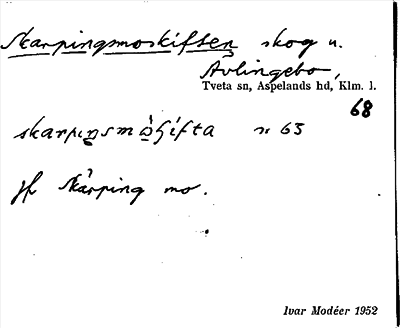 Skarpingsmoskiften skog u.
Åvlingebo,
Tveta sn, Aspelands hd, Klm. l.
68
n 63
jf Skärping mo.
Ivar Modéer 1952